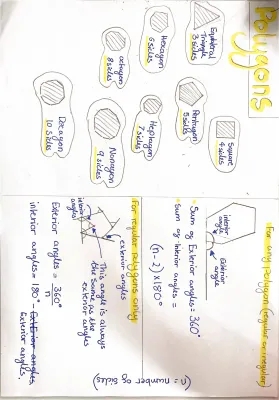 Polygons
Equilateral
Triangle
3 sides
Hexagon
6 sides
octagon
8 sides
Square
4 sides
Pentagon
5 sides
Heptagon
7 sides
Nonagon
9 sides
Decagon
10 sides
For any polygon (regular or irregular)
interior
angle
exterior
angle
Sum of Exterior angles = 360°
Sum of Interior angles =
(n-2) × 180°
For regular polygons only:
exterior angles
interior
angles
This angle is always
the same as the
exterior angles
Exterior angles = 360°
n
interior angles = 180° - Exterior angles
Exterior angles.
(n = number of sides)